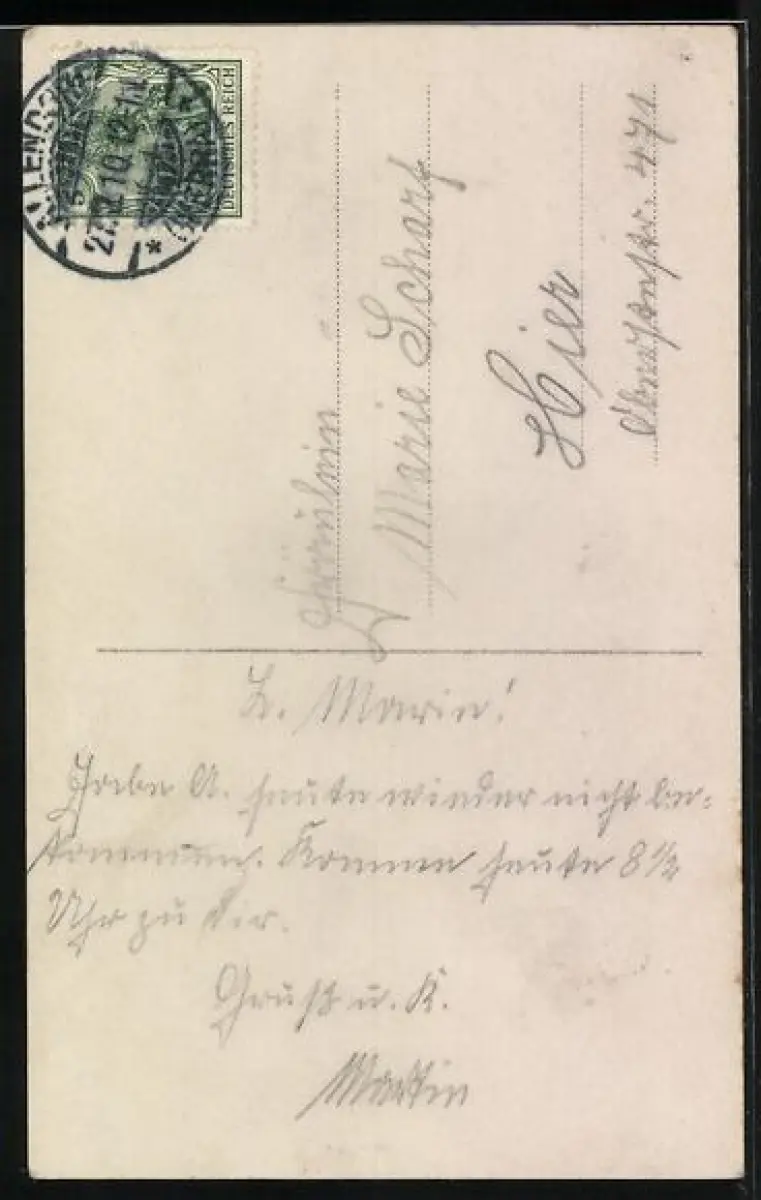 DEUTSCHES REICH
ALLENDORF
27. 12. 10. 12-1 N.
Fräulein
Marie Scharf
Hier
471
L. Marie!
Habe A. heute wieder nicht be-
kommen. Komme heute 8 1/2
Uhr zu Dir.
Gruß u. K.
Martin